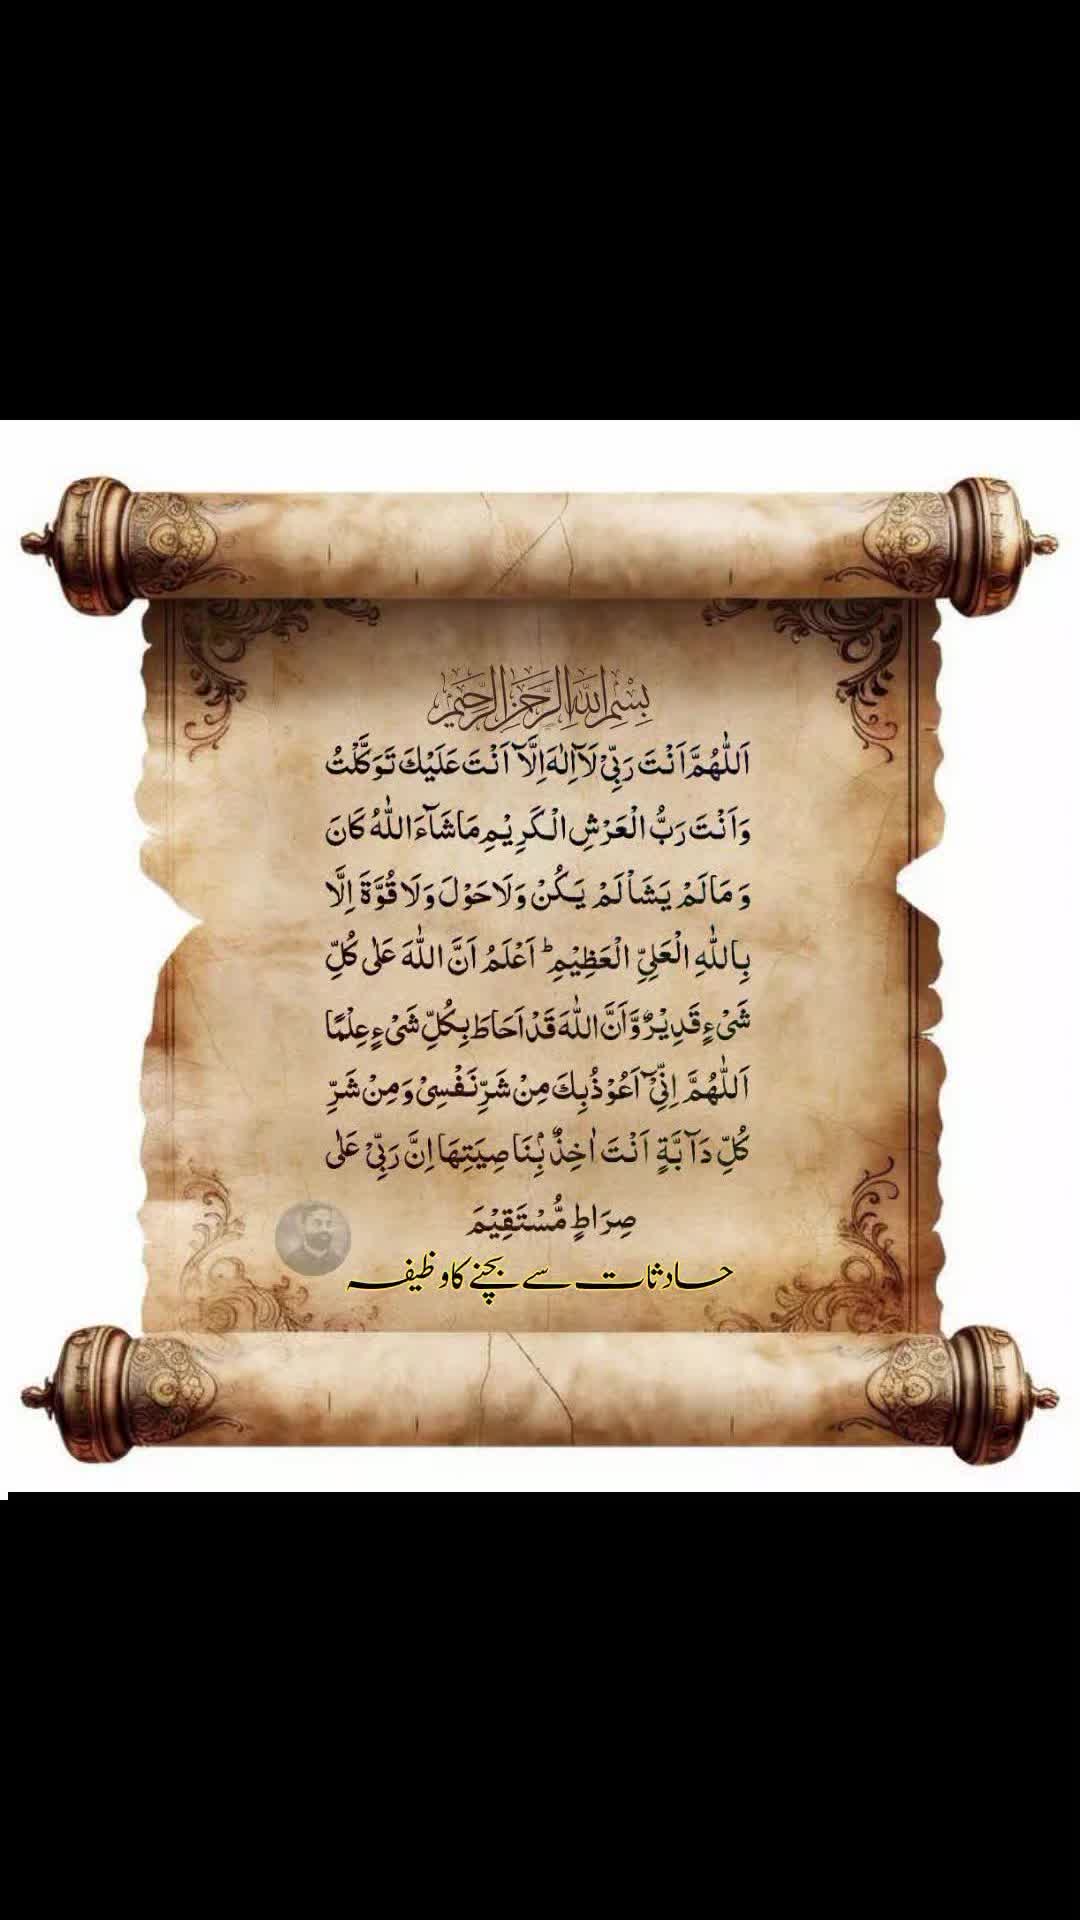 بِسْمِ اللهِ الرَّحْمٰنِ الرَّحِيْمِ
اَللّٰهُمَّ اَنْتَ رَبِّیْ لَاۤ اِلٰهَ اِلَّاۤ اَنْتَ عَلَیْكَ تَوَكَّلْتُ
وَاَنْتَ رَبُّ الْعَرْشِ الْكَرِیْمِ مَا شَآءَ اللّٰهُ كَانَ
وَ مَا لَمْ یَشَاْ لَمْ یَكُنْ وَلَا حَوْلَ وَلَا قُوَّةَ اِلَّا
بِاللّٰهِ الْعَلِیِّ الْعَظِیْمِ ؕ اَعْلَمُ اَنَّ اللّٰهَ عَلٰی كُلِّ
شَیْءٍ قَدِیْرٌ وَّاَنَّ اللّٰهَ قَدْ اَحَاطَ بِكُلِّ شَیْءٍ عِلْمًا
اَللّٰهُمَّ اِنِّیْۤ اَعُوْذُ بِكَ مِنْ شَرِّ نَفْسِیْ وَ مِنْ شَرِّ
كُلِّ دَآبَّةٍ اَنْتَ اٰخِذٌۢ بِنَاصِیَتِهَا اِنَّ رَبِّیْ عَلٰی
صِرَاطٍ مُّسْتَقِیْمَ
حادثات سے بچنے کا وظیفہ